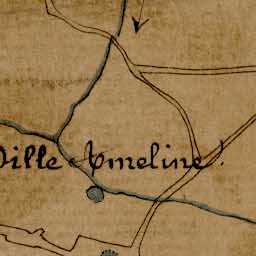 Ville Ameline